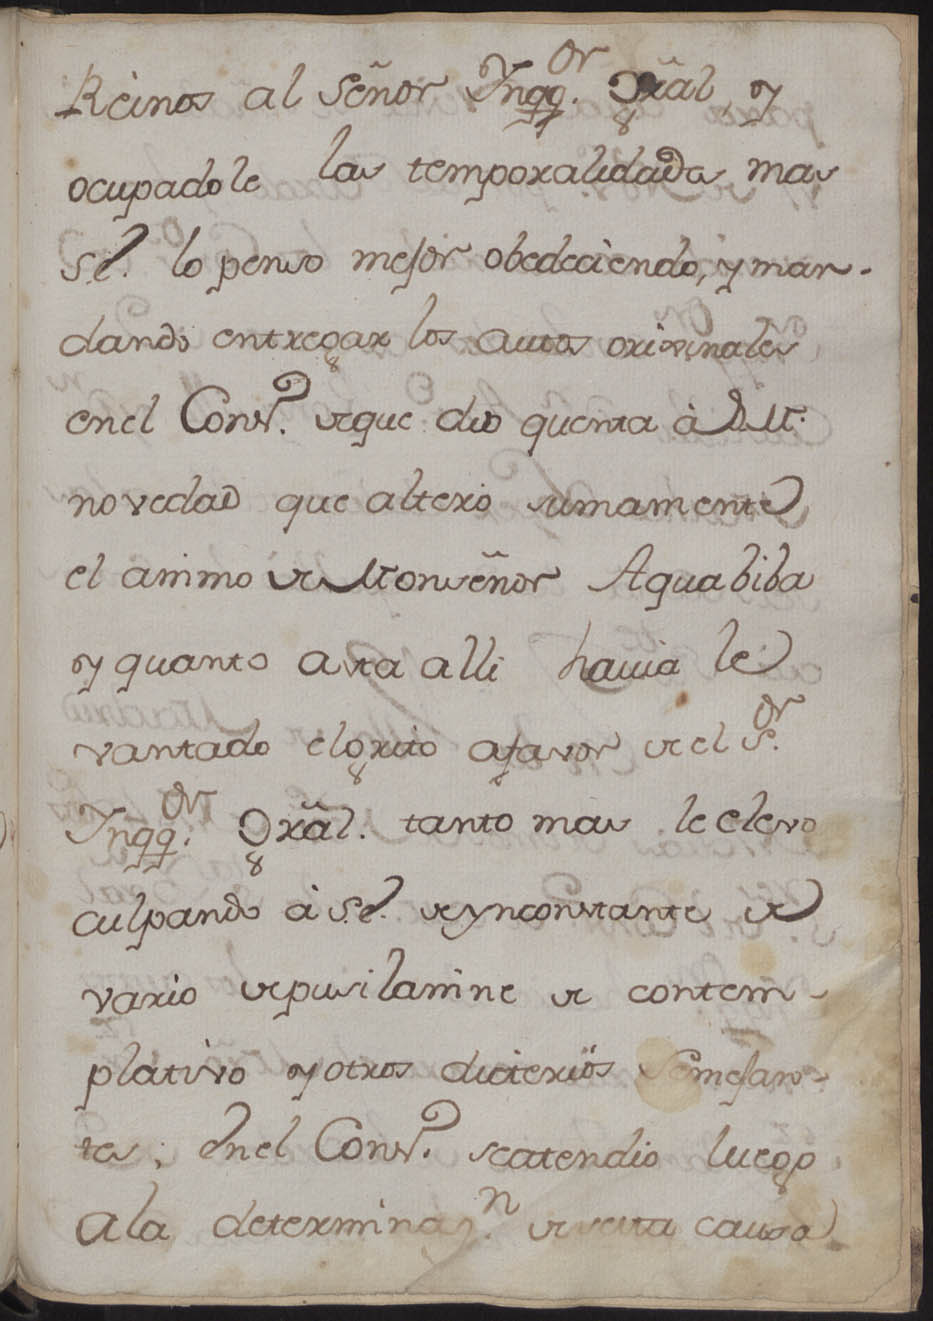 Reinos al Señor Ynqq.or Gräl y
ocupadole las temporalidades mas
S.E. lo penso mejor obedeciendo, y man-
dando entregar los autos originales
en el Cons.º de que dio quenta à V.M.
novedad que altero sumamente
el animo de Monseñor Aquabiba
y quanto asta alli havia le
vantado el grito afavor de el S.or
Ynqq.or Gräl. tanto mas le elevo
culpando à S.E. de ynconstante de
vario de pusilamine de contem-
plativo y otros dicterios Semejan-
tes; En el Cons.º se atendio luego
a la determinaz.n de esta causa